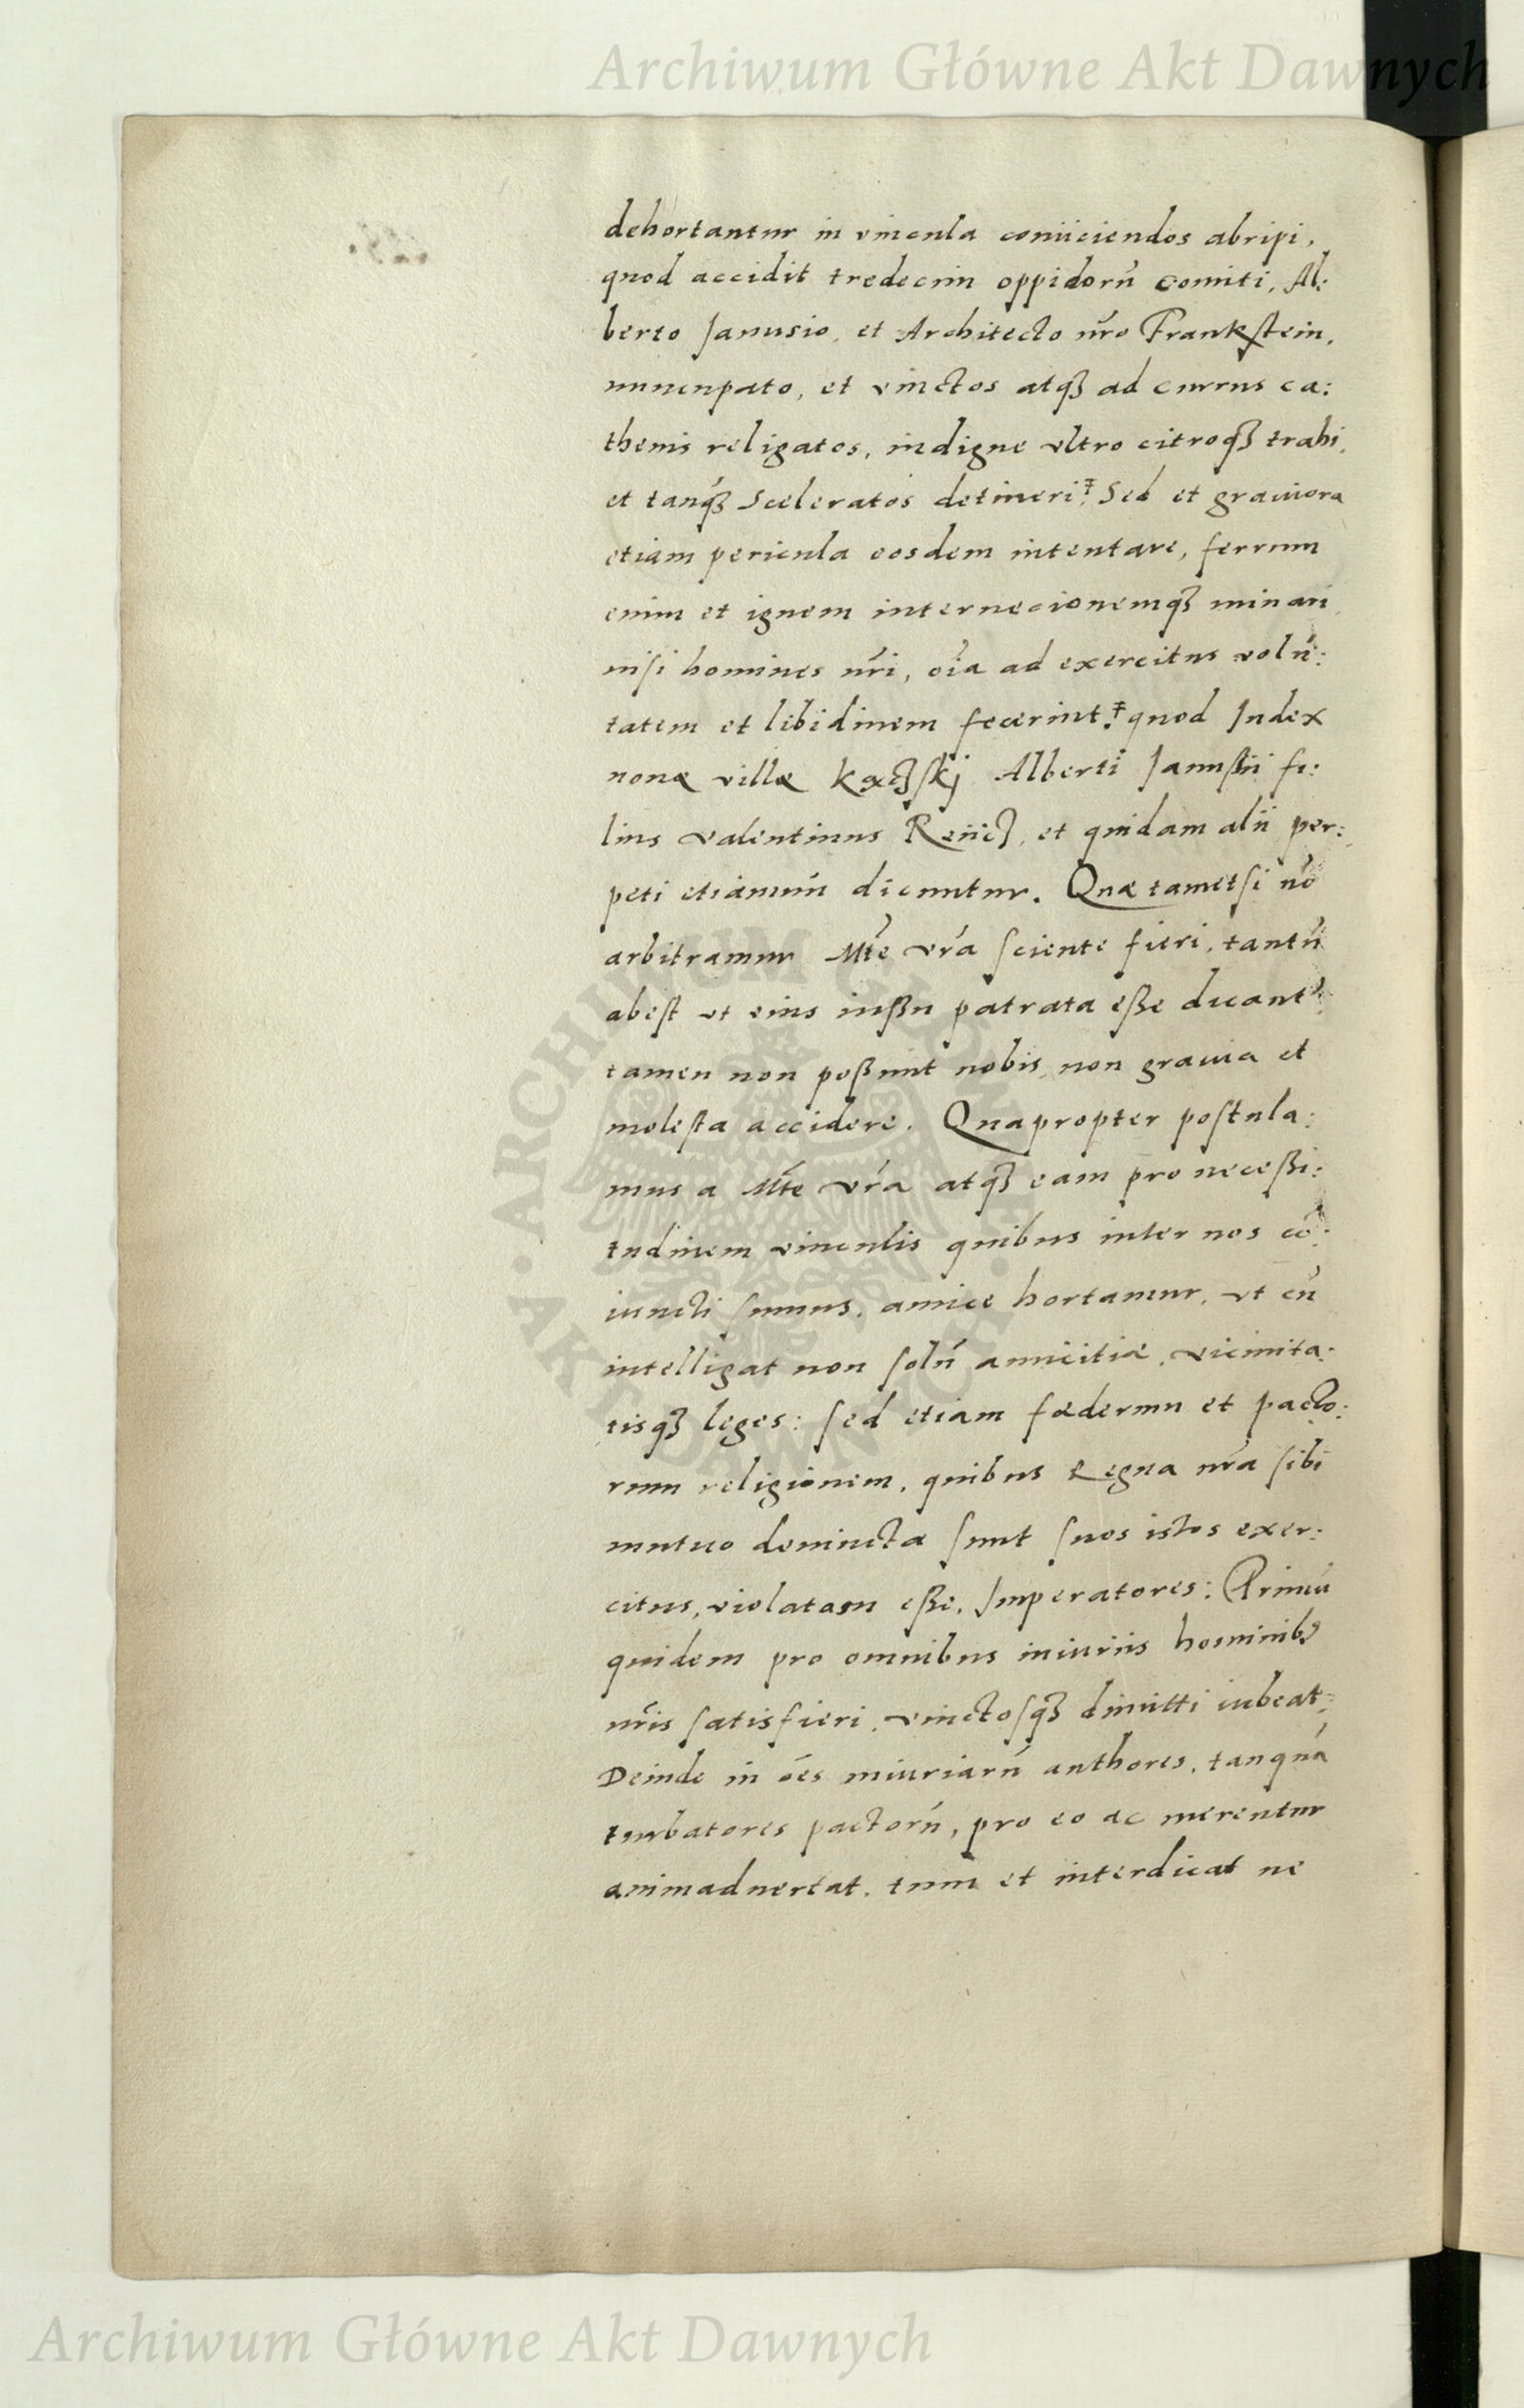 Archiwum Główne Akt Dawnych
dehortantur in vincula coniiciendos abripi,
quod accidit tredecim oppidorū comiti, Al:
berto Janusio, et Architecto nr̄o Frankstein,
nuncupato, et vinctos atqȝ ad currus ca:
thenis religatos, indigne vltro citroqȝ trahi,
et tanqȝ Sceleratos detineri, Sed et grauiora
etiam pericula eosdem intentare, ferrum
enim et ignem internecionemqȝ minari
nisi homines nr̄i, oīa ad exercitus volū:
tatem et libidinem fecerint. quod Judex
nouæ villæ Alberti Janussii fi:
lius valentinus et quidam alii per:
peti etiamnū dicuntur. Quæ tametsi nō
arbitramur Mt̄e vr̄a sciente fieri, tantū
abest vt eius iussu patrata esse ducant᾽
tamen non possunt nobis non grauia et
molesta accidere. Quapropter postula:
mus a Mt̄e vr̄a atqȝ eam pro necessi:
tudinem vinculis quibus inter nos cō:
iuncti sumus, amice hortamur, vt cū
intelligat non solū amicitiæ, vicinita:
tisqȝ leges: sed etiam fœderum et pacto:
rum religionem, quibus Regna nr̄a sibi
mutuo deuincta sunt suos istos exer:
citus, violatam esse, Imperatores: Primū
quidem pro omnibus iniuriis hominibꝰ
nr̄is satisfieri, vinctosqȝ dimitti iubeat,
Deinde in ōēs iniuriarū authores, tanquā
turbatores pactorū, pro eo ac merentur
animaduertat, tum et interdicat ne
ARCHIWUM GŁÓWNE AKT DAWNYCH
Archiwum Główne Akt Dawnych